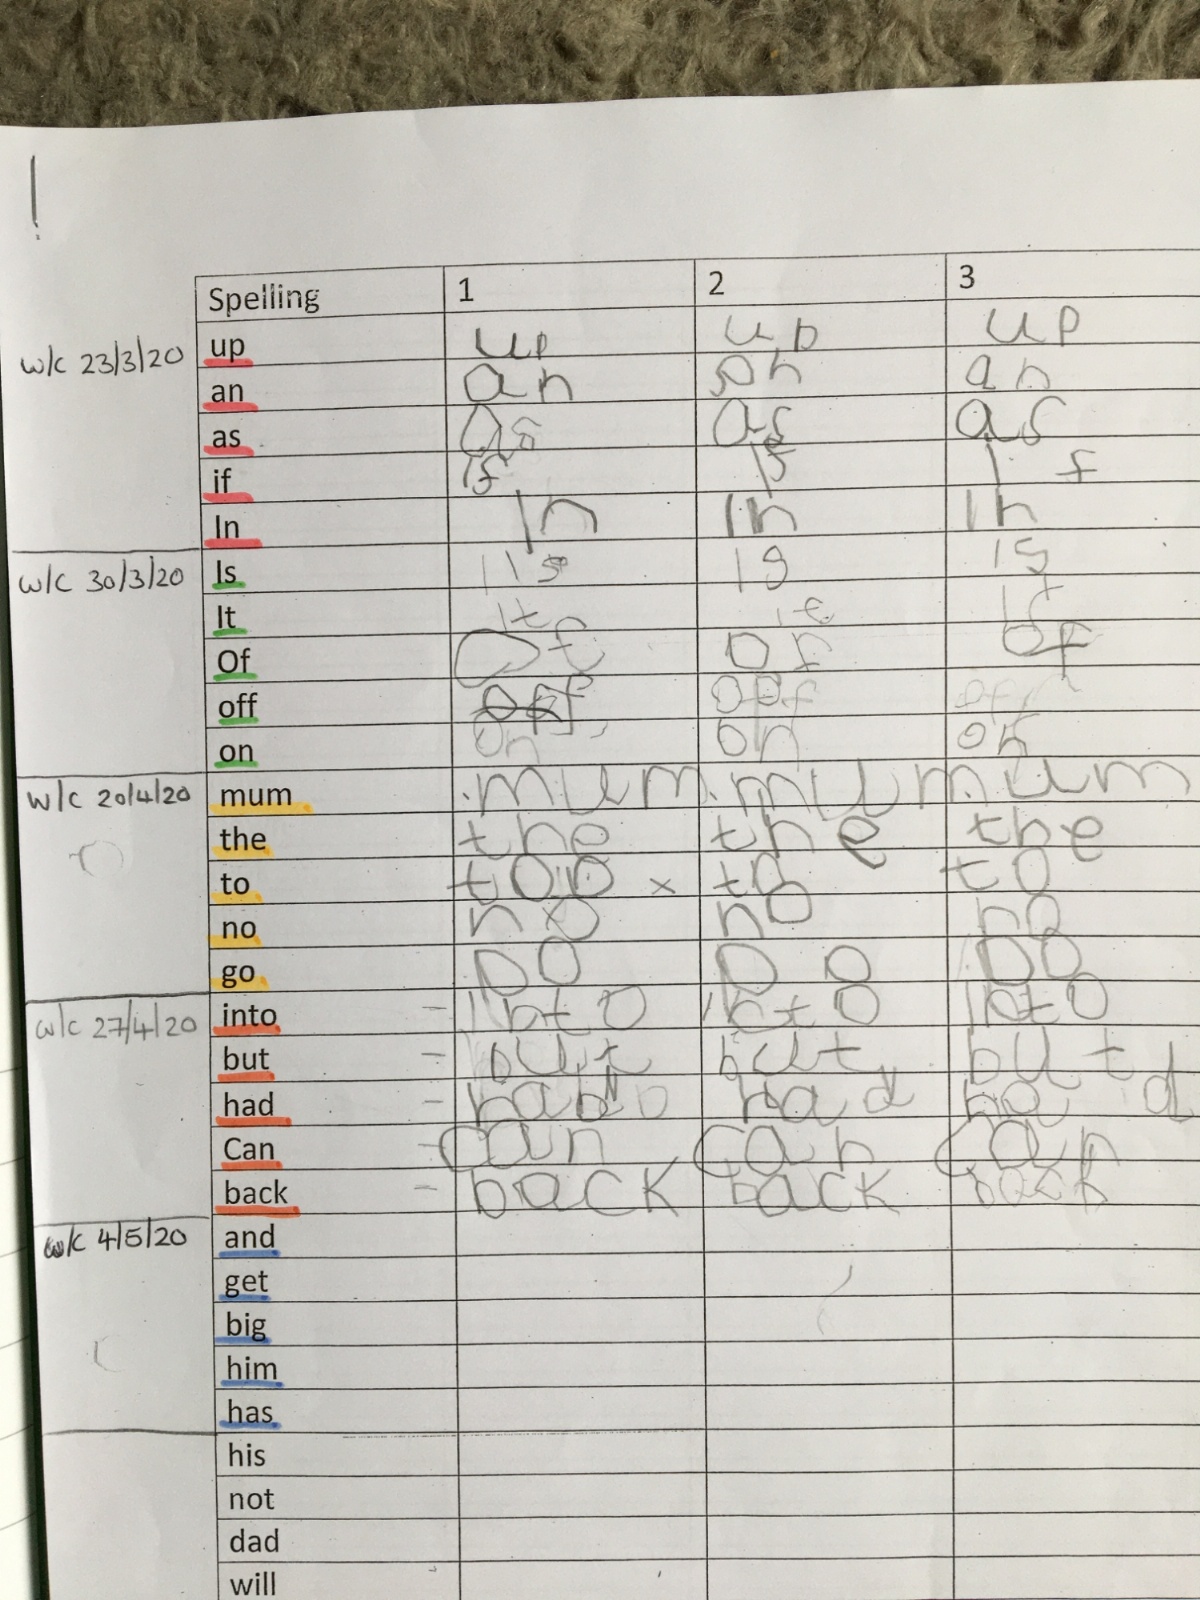 !
Spelling 1 2 3
w/c 23/3/20 up up up up
an an an an
as as as as
if if if if
In In In In
w/c 30/3/20 Is Is Is
It It It It
Of Of Of Of
off off off off
on on on on
w/c 20/4/20 mum mum mum mum
the the the the
to too x to to
no no no no
go
w/c 27/4/20 into - into into into
but - but but but
had - had had
Can - Can Can Can
back - back back back
w/c 4/5/20 and
get
big
him
has
his
not
dad
will